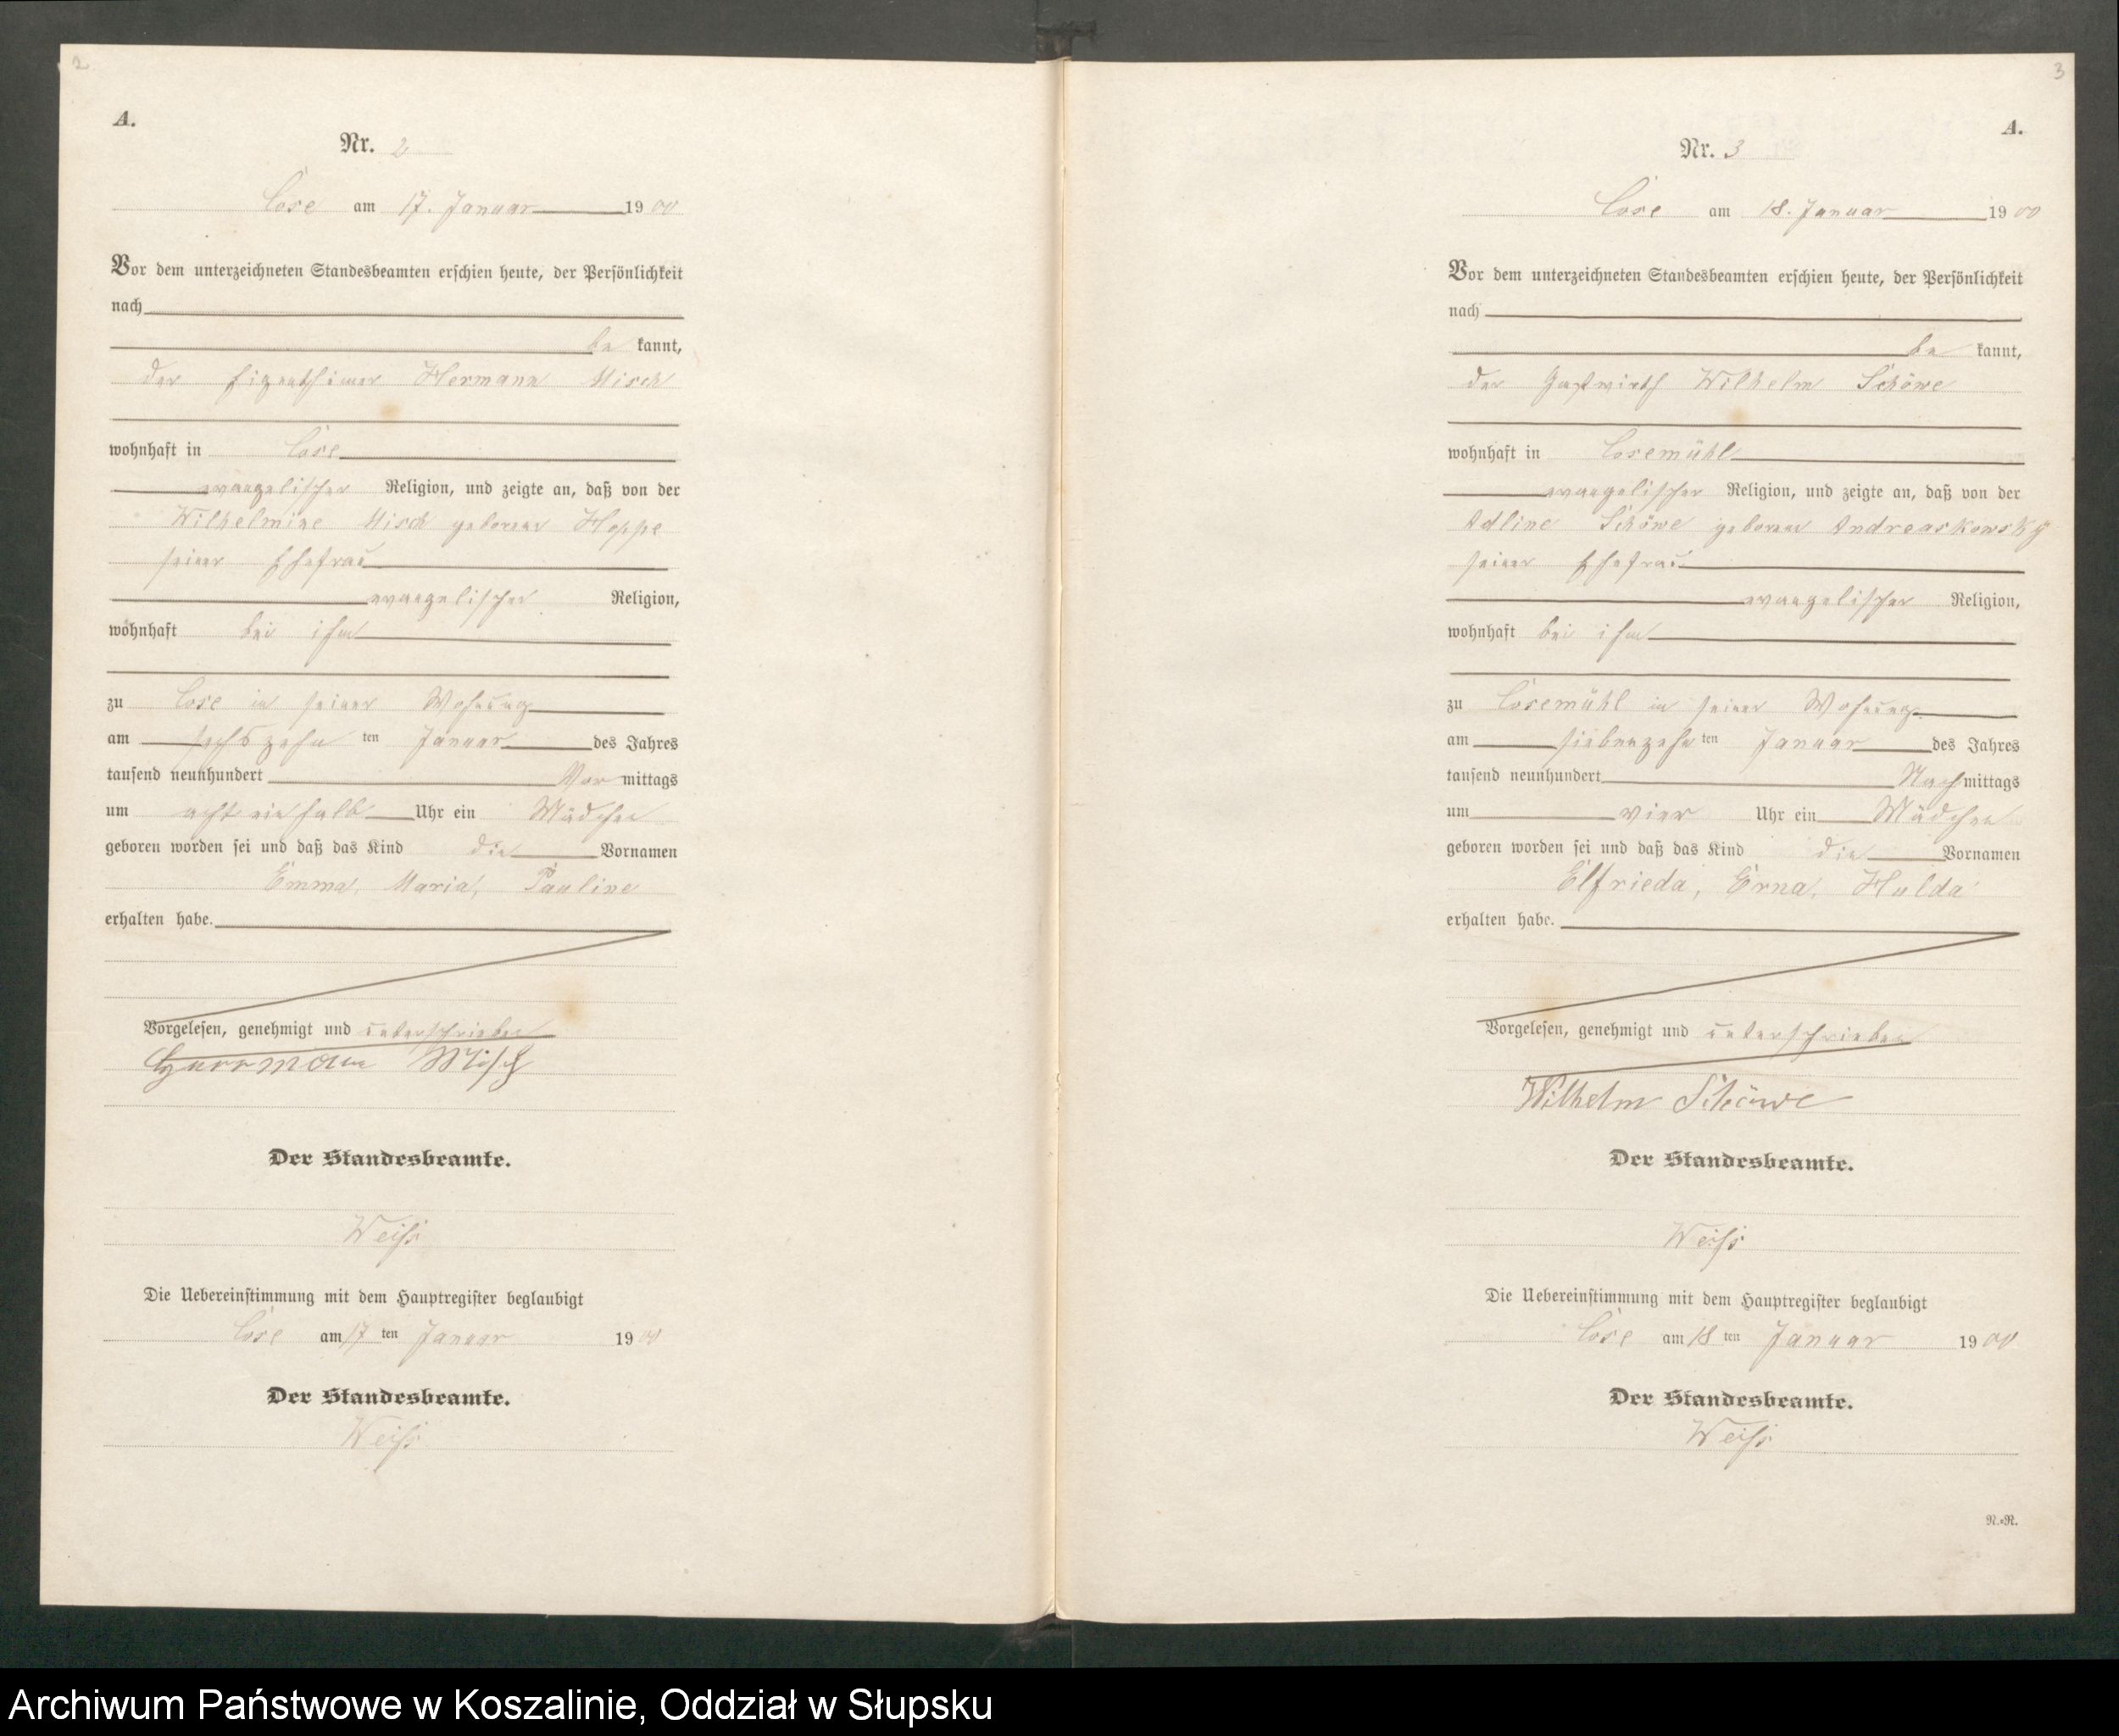 2
A.
Nr. 2
Cose am 17. Januar 1900
Vor dem unterzeichneten Standesbeamten erschien heute, der Persönlichkeit
nach
be kannt,
der Eigenthümer Hermann Misch
wohnhaft in Cose
evangelischer Religion, und zeigte an, daß von der
Wilhelmine Misch geborene Hoppe
seiner Ehefrau
evangelischer Religion,
wohnhaft bei ihm
zu Cose in seiner Wohnung
am sechszehn ten Januar des Jahres
tausend neunhundert Vor mittags
um acht ein halb Uhr ein Mädchen
geboren worden sei und daß das Kind die Vornamen
Emma, Maria, Pauline
erhalten habe.
Vorgelesen, genehmigt und unterschrieben
Herrmann Misch
Der Standesbeamte.
Weiß
Die Uebereinstimmung mit dem Hauptregister beglaubigt
Cose am 17 ten Januar 1900
Der Standesbeamte.
Weiß
3
A.
Nr. 3
Cose am 18. Januar 1900
Vor dem unterzeichneten Standesbeamten erschien heute, der Persönlichkeit
nach
be kannt,
der Gastwirth Wilhelm Schöwe
wohnhaft in Cosemühl
evangelischer Religion, und zeigte an, daß von der
Adline Schöwe geborene Andreaskowsky
seiner Ehefrau
evangelischer Religion,
wohnhaft bei ihm
zu Cosemühl in seiner Wohnung
am siebenzehn ten Januar des Jahres
tausend neunhundert Nach mittags
um vier Uhr ein Mädchen
geboren worden sei und daß das Kind die Vornamen
Elfrieda, Erna, Hulda
erhalten habe.
Vorgelesen, genehmigt und unterschrieben
Wilhelm Schöwe
Der Standesbeamte.
Weiß
Die Uebereinstimmung mit dem Hauptregister beglaubigt
Cose am 18 ten Januar 1900
Der Standesbeamte.
Weiß
N.=R.
Archiwum Państwowe w Koszalinie, Oddział w Słupsku